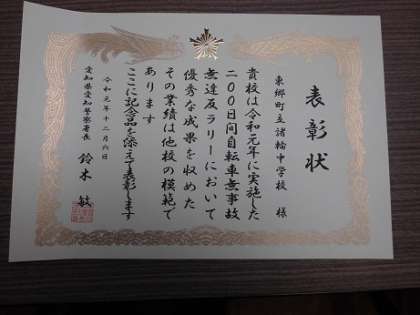 表彰状
東郷町立諸輪中学校 様
貴校は令和元年に実施した
二〇〇日間自転車無事故
無違反ラリーにおいて
優秀な成果を収めた
その業績は他校の模範で
あります
ここに記念品を添えて表彰します
令和元年十二月六日
愛知県愛知警察署長 鈴木 敏